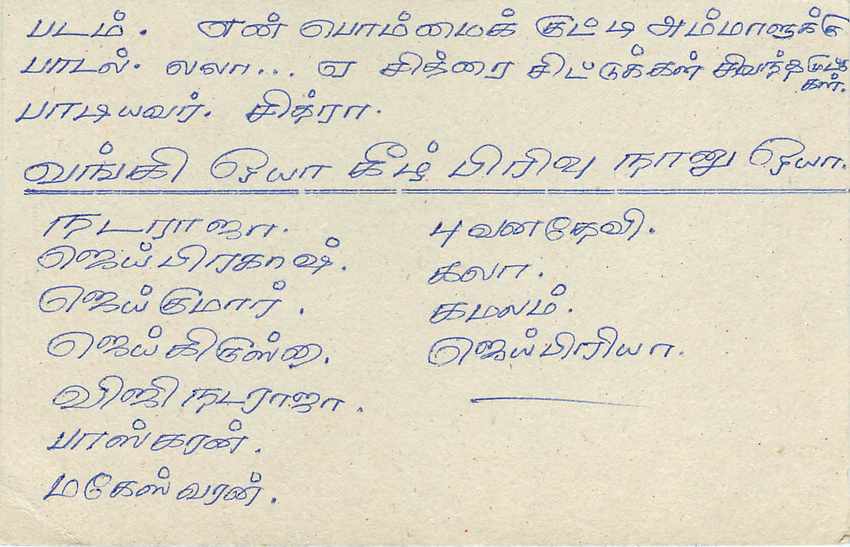 படம். என் பொம்மைக் குட்டி அம்மாளுக்கு
பாடல். லலா... ஏ சித்திரை சிட்டுக்கள் சிவந்த மொட்டுக்கள்.
பாடியவர். சித்ரா.
வங்கி ஓயா கீழ் பிரிவு நானு ஓயா.
நடராஜா.
ஜெய்பிரகாஷ்.
ஜெய்குமார்.
ஜெய்கிருஸ்ண.
விஜி நடராஜா.
பாஸ்கரன்.
மகேஸ்வரன்.
புவனதேவி.
கலா.
கமலம்.
ஜெய்பிரியா.